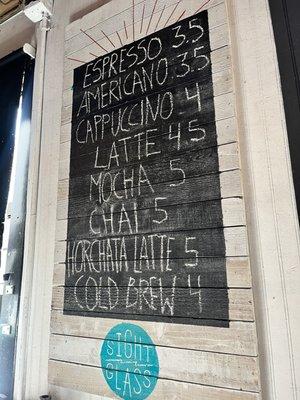 ESPRESSO 3.5
AMERICANO 3.5
CAPPUCCINO 4
LATTE 4.5
MOCHA 5
CHAI 5
HORCHATA LATTE 5
COLD BREW 4
SIGHT
GLASS